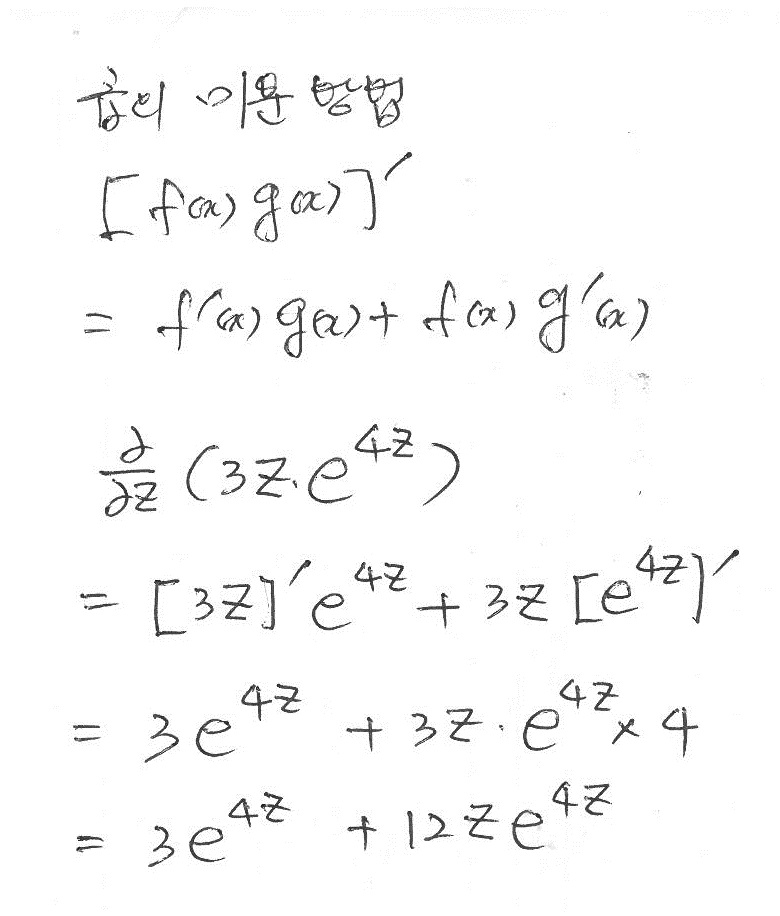 곱의 미분 방법
[f(x) g(x)]′
= f′(x) g(x) + f(x) g′(x)
∂/∂z (3z·e^{4z})
= [3z]′ e^{4z} + 3z [e^{4z}]′
= 3e^{4z} + 3z·e^{4z} × 4
= 3e^{4z} + 12ze^{4z}